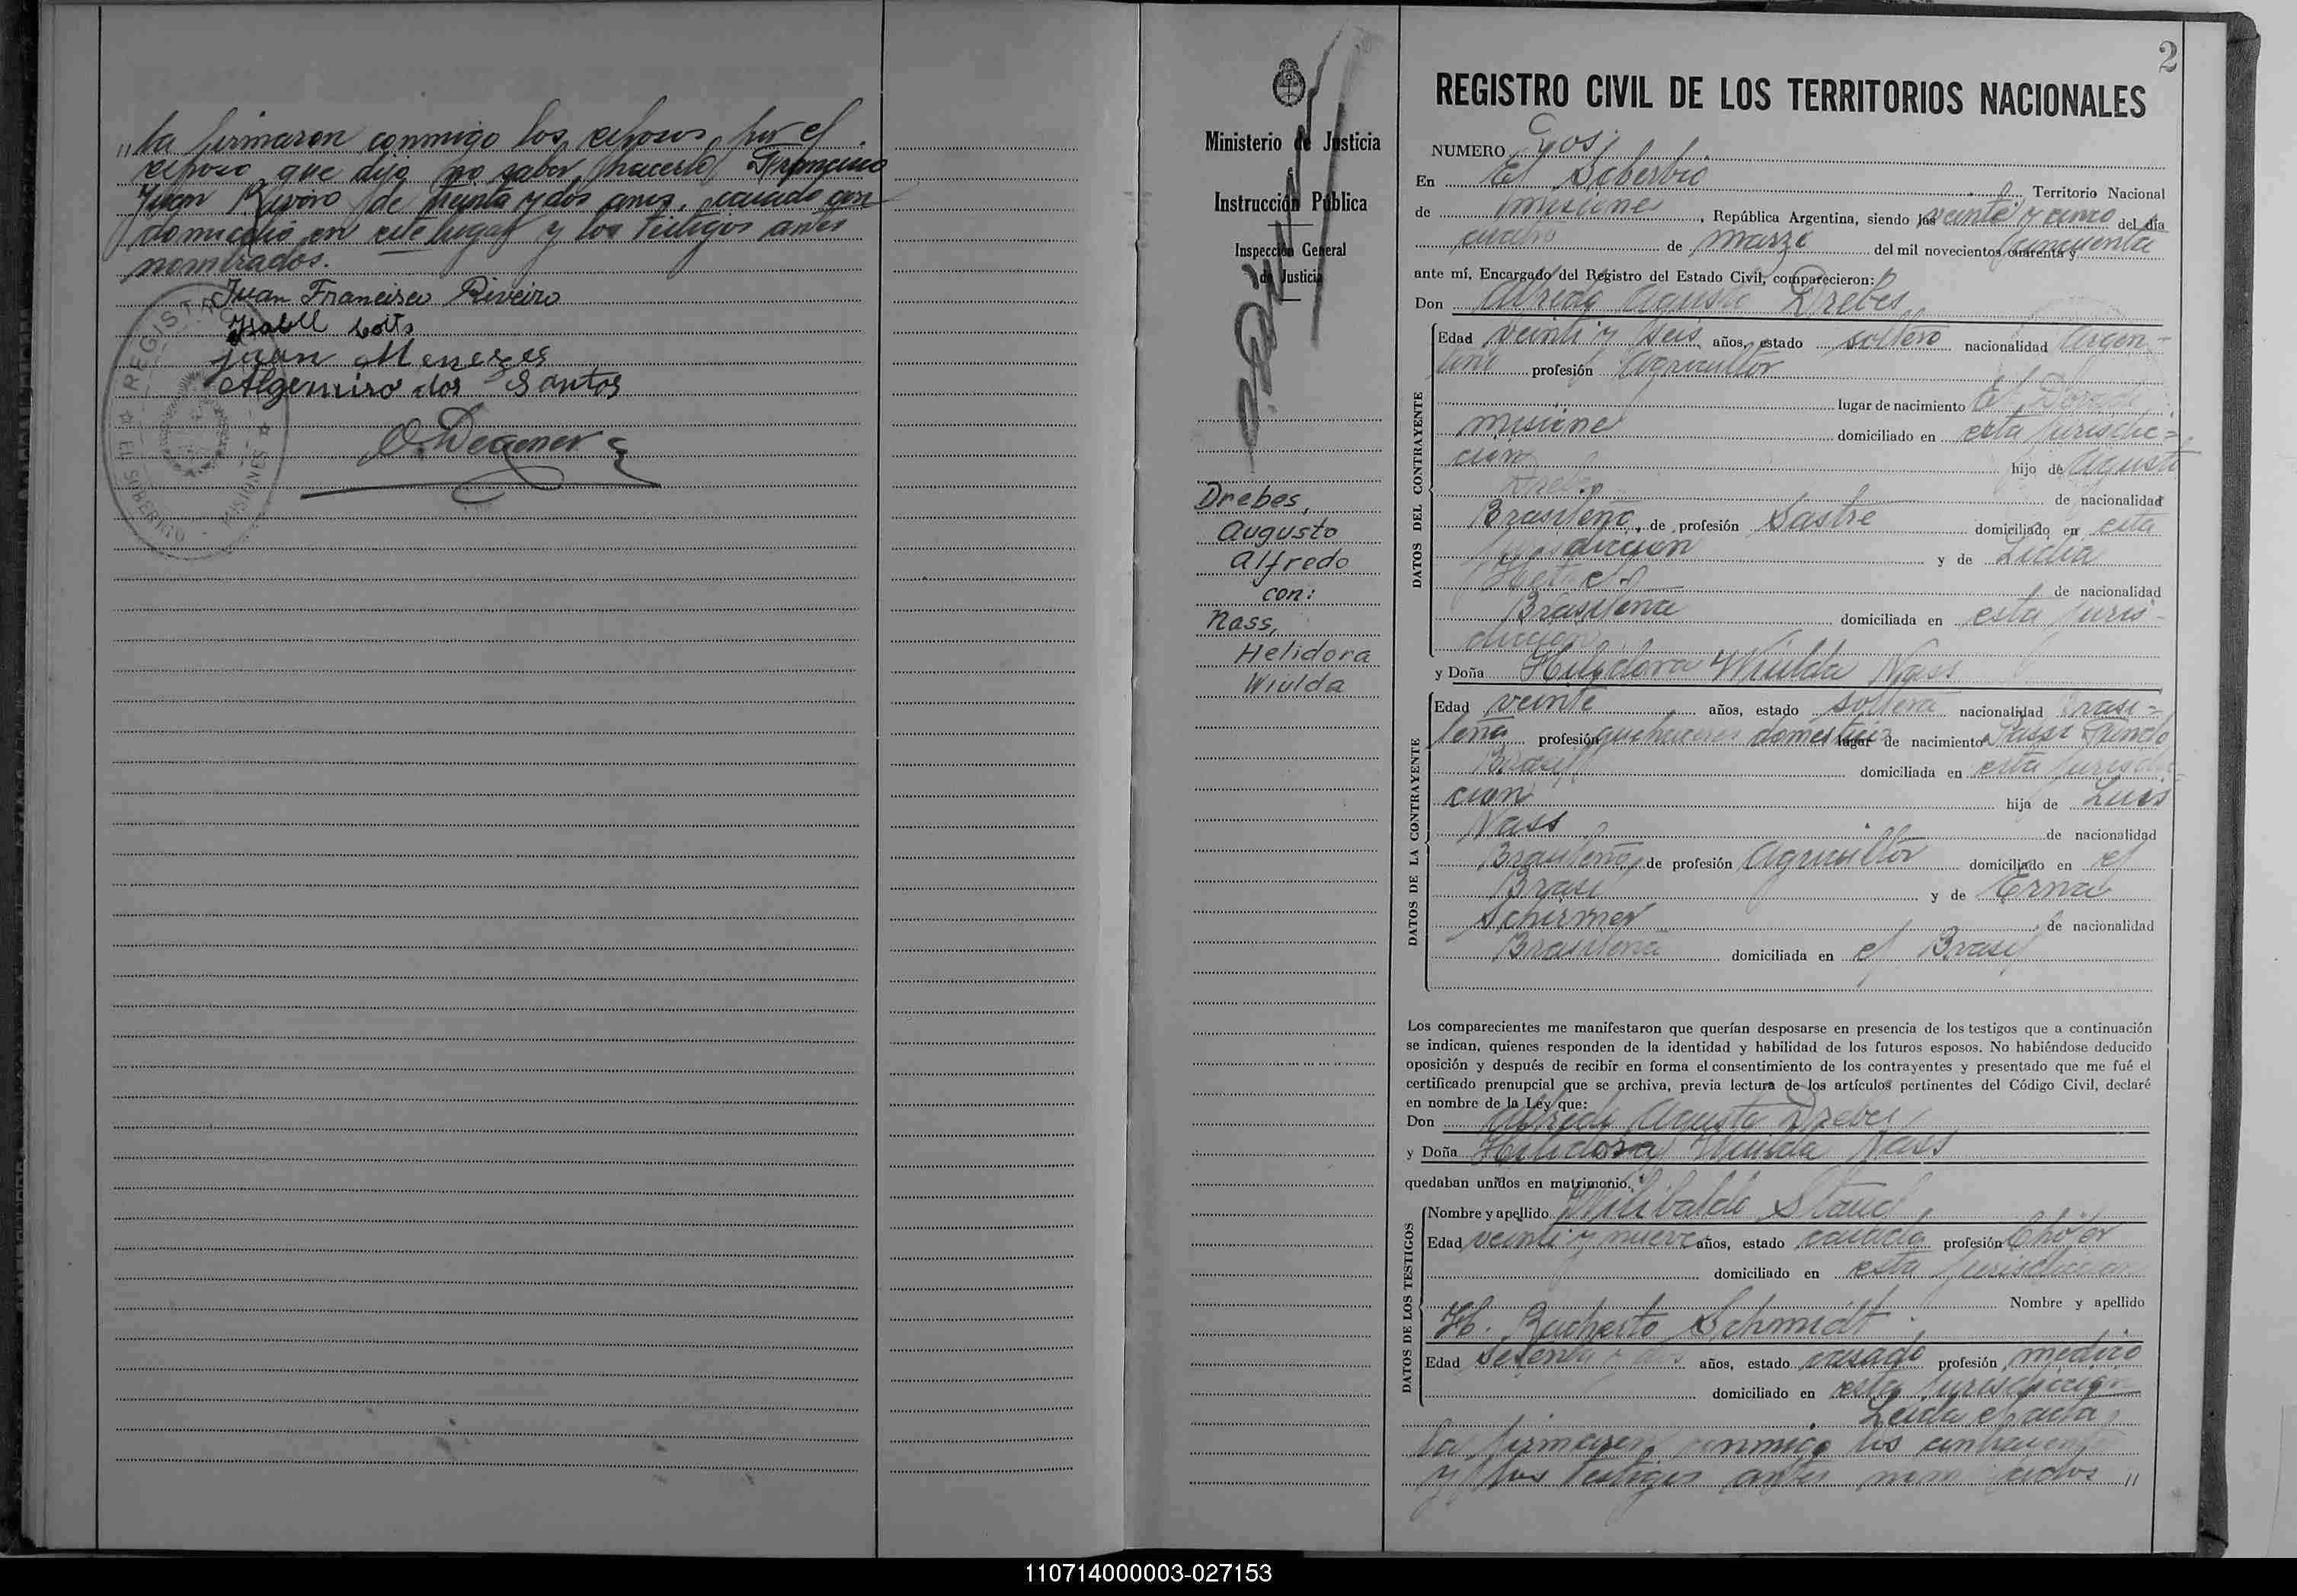 "la firmaron conmigo los esposos, por el
esposo que dijo no saber hacerlo Francisco
Juan Riveiro de treinta y dos anos, casado con
domicilio en este lugar y los testigos antes
nombrados.
Juan Francisco Riveiro
Isabell
Juan Menezes
Algemiro dos Santos
O. Degener
REGISTRO
EL SOBERBIO - MISIONES
Ministerio de Justicia
é
Instrucción Pública
Inspección General
de Justicia
Drebes,
Augusto
Alfredo
con:
Nass,
Helidora
Wiulda
2
REGISTRO CIVIL DE LOS TERRITORIOS NACIONALES
NUMERO Dos
En El Soberbio Territorio Nacional
de Misiones, República Argentina, siendo las veinte y cinco del día
cuatro de marzo del mil novecientos cuarenta y cincuenta
ante mí, Encargado del Registro del Estado Civil, comparecieron:
Don Alfredo Agusto Drebes
DATOS DEL CONTRAYENTE
Edad veinti y seis años, estado soltero nacionalidad Argen-
tino profesión Agricultor
lugar de nacimiento El Dorado
Misiones domiciliado en esta jurisdic=
cion hijo de Agusto
Drebes de nacionalidad
Brasileño, de profesión Sastre domiciliado en esta
jurisdiccion y de Lidia
de nacionalidad
Brasileña domiciliada en esta juris-
diccion
y Doña Helidora Wiulda Nass
DATOS DE LA CONTRAYENTE
Edad veinte años, estado soltera nacionalidad Brasi=
leña profesión quehaceres domesticos lugar de nacimiento Passo Fundo
Brasil domiciliada en esta jurisdic=
cion hija de Luis
Nass de nacionalidad
Brasileño, de profesión Agricultor domiciliado en el
Brasil y de Erna
Schirmer de nacionalidad
Brasileña domiciliada en el Brasil
Los comparecientes me manifestaron que querían desposarse en presencia de los testigos que a continuación
se indican, quienes responden de la identidad y habilidad de los futuros esposos. No habiéndose deducido
oposición y después de recibir en forma el consentimiento de los contrayentes y presentado que me fué el
certificado prenupcial que se archiva, previa lectura de los artículos pertinentes del Código Civil, declaré
en nombre de la Ley que:
Don Alfredo Agusto Drebes
y Doña Helidora Wiulda Nass
quedaban unidos en matrimonio.
DATOS DE LOS TESTIGOS
Nombre y apellido Wilibaldo Staud
Edad veinti y nueve años, estado casado profesión Chofer
domiciliado en esta jurisdiccion
Nombre y apellido
H. Schmidt
Edad setenta y dos años, estado casado profesión médico
domiciliado en esta jurisdiccion
Leida el acta
la firmaron conmigo los contrayentes
y los testigos antes nombrados "
110714000003-027153